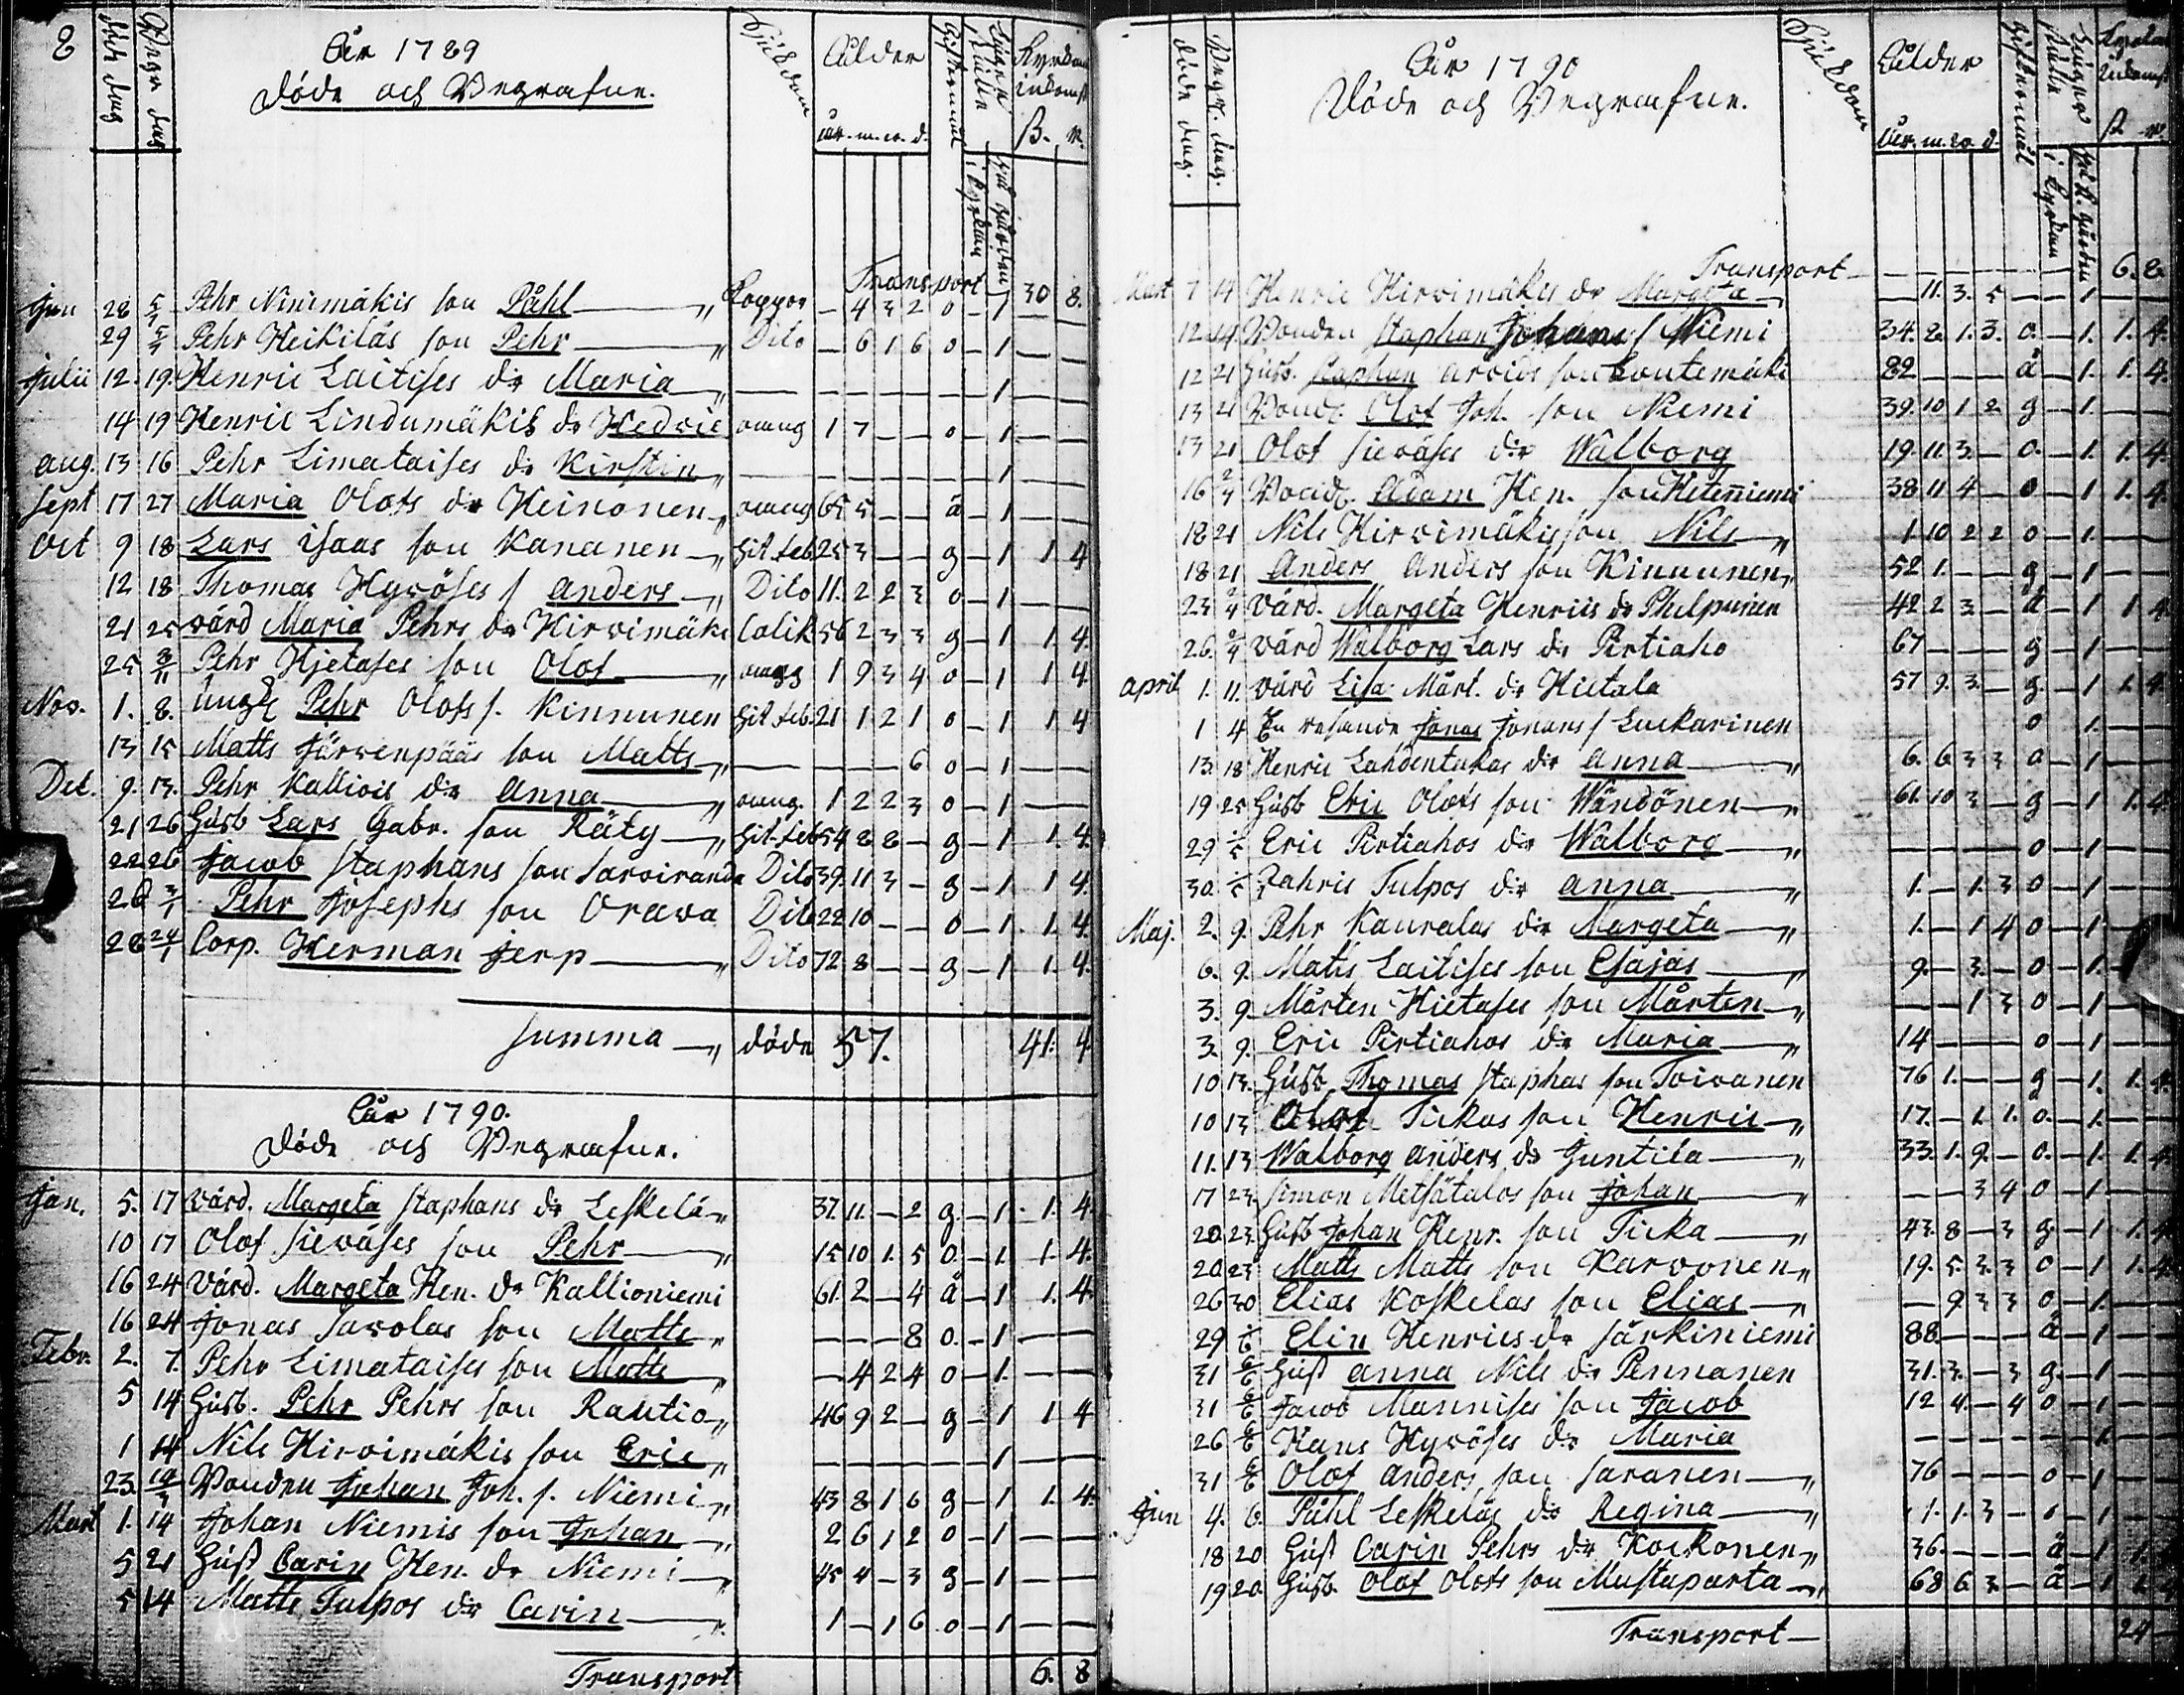 8
Döde dag
Begr dag
År 1789
Döde och Begrafne.
Sjukdom
Ålder
år. m. v. d.
i Kyrkan
ß. r.
Transport 30 8.
Jun 28 5/7 Pehr Ninimäkis son Påhl — Koppor — 4 3 2 0 — 1 —
29 5/7 Pehr Heikiläs son Pehr — Dito — 6 1 6 0 — 1 —
Julii 12. 19. Henric Laitises dr Maria — 1 —
14 19 Henric Lindumäkis dr Hedvic 1 7 — — 0 — 1 —
aug. 13 16 Pehr Limataises dr Kirstin — 1 —
Sept 17 27 Maria Olofs dr Heinonen 65 5 — — ä — 1 —
Oct 9 18 Lars Isaas son Kananen — Hit. feb. 25 3 — — g — 1 1 4
12 18 Thomas Hyvöses s Anders — Dito 11. 2 2 3 0 — 1 —
21 25 Värd Maria Pehrs dr Hirvimäki Colik 56 2 3 3 g — 1 1. 4.
25 3/11 Pehr Hjetases son Olof — 1 9 3 4 0 — 1 1 4.
Nov. 1. 8. Ungk Pehr Olofs s. Kinnunen Hit feb. 21 1 2 1 0 — 1 1 4
13 15 Matts Järvenpääs son Matts — 6 0 — 1 —
Dec. 9. 13. Pehr Kalliois dr Anna — 1 2 2 3 0 — 1 —
21 26 Husb Lars Gabr. son Räty — Hit. feb 54 8 8 — g — 1 1. 4.
22 26 Jacob Staphans son Sarviranda Dito 39. 11 3 — g — 1. 1 4.
28 3/1 Pehr Josephs son Orava Dito 22 10 — — 0 — 1. 1. 4.
28 24/1 Corp. Herman Jerp — Dito 72 8 — — g — 1 1. 4.
Summa — döde 57. 41. 4.
År 1790.
Döde och Begrafne.
Jan. 5. 17 Värd. Margeta Staphans dr Leskelä 37. 11 — 2 g. — 1. 1. 4.
10 17 Olof Sieväses son Pehr — 15 10 1. 5 0. — 1. 1. 4.
16 24 Värd. Margeta Hen. dr Kallioniemi 61. 2 — 4 ä — 1 1. 4.
16 24 Jonas Savolas son Matts — — — 8 0. — 1 —
Febr. 2. 7. Pehr Limataises son Matts — 4 2 4 0 — 1. —
5 14 Husb. Pehr Pehrs son Rautio 46 9 2 — g — 1 1 4
1 14 Nils Hirvimäkis son Eric — 1 —
23. 14/3 Bonden Johan Joh. s. Niemi 43 8 1 6 g — 1 1. 4.
Mart 1. 14 Johan Niemis son Johan 2 6 1 2 0 — 1 —
5 21 Hust Carin Hen. dr Niemi 45 4 — 3 g — 1 —
5 14 Matts Tulpos dr Carin — 1 — 1 6 0 — 1 —
Transport 6. 8
Döde dag.
Begr. dag.
År 1790
Döde och Begrafne.
Sjukdom
Ålder
år. m. v. d.
i Kyrkan
ß r.
Transport — 6. 8.
Mart 7 14 Henric Hirvimäkis dr Margeta — 11. 3. 5 — 1 —
12 14. Bonden Staphan Johans s Niemi 34. 2. 1. 3. 0. — 1. 1. 4.
12 21 Husb. Staphan son Lontemäki 82 — ä — 1. 1. 4.
13 21 Bond. Olof Joh. son Niemi 39. 10 1 2 g — 1. —
13 21 Olof Sieväses dr Walborg 19. 11. 3. — 0. — 1. 1. 4.
16 2/4 Adam Hen. son Heteniemi 38. 11 4 — 0 — 1 1. 4.
18 21 Nils Hirvimäkis son Nils 1 10 2 2 0 — 1. —
18 21 Anders Anders son Kinnunen 52 1. — — g — 1 —
23 2/4 Värd. Margeta Henrics dr Philpunen 42 2 3 — ä — 1 1 4
26. 2/4 Värd Walborg Lars dr Pirtiaho 67 — g — 1 —
April 1. 11. Värd Lisa Mårt. dr Hietala 57 9. 3. — g. — 1 1. 4
1 4 En resande Jonas Jonans s Luckarinen 0 1. —
13. 18 Henric Lahdentakas dr Anna — 6. 6 3 3 0 — 1 —
19 25 Husb Eric Olofs son Wändönen 61. 10 3 — g — 1 1. 4
29 2/5 Eric Pirtiahos dr Walborg — 0 — 1 —
30. 2/5 Zahris Tulpos dr Anna — 1. — 1. 3 0 — 1 —
Maj. 2. 9. Pehr Kauralas dr Margeta — 1. — 1 4 0 — 1 —
6. 9. Matts Laitises son Esajas — 9. — 3. — 0 — 1. —
3. 9. Mårten Hietases son Mårten — — 1 3 0 — 1 —
3. 9. Eric Pirtiahos dr Maria — 14 — 0 — 1 —
10 13. Husb. Thomas Staphas son Toivanen 76 1. — — g — 1. 1. 4.
10 13 Olof Tickas son Henric — 17. — 1. 1. 0. — 1. —
11. 13 Walborg Anders dr Juntila — 33. 1. 9. — 0. — 1. 1. 4.
17 23 Simon Metsätalos son Johan — — — 3 4 0 — 1 —
20. 23. Husb Johan Henr. son Ticka — 43. 8 — 3 g. — 1 1. 4
20 23 Matts Matts son Karvonen 19. 5. 3. 3 0 — 1 1. 4.
26 30 Elias Koskelas son Elias — — 9 3 3 0 — 1. —
29 6/6 Elin Henrics dr Särkiniemi 88. — ä — 1. —
31 6/6 Hust Anna Nils dr Pennanen 31. 3. — 3 g. — 1 —
31 6/6 Jacob Mannises son Jacob 12 4. — 4 0 — 1 —
26 6/6 Hans Hyvöses dr Maria — 1. —
31 6/6 Olof Anders son Saranen — 76 — 0 — 1 —
Jun 4. 6. Påhl Leskeläs dr Regina — 1. 1. 3 —
18 20 Hust Carin Pehrs dr Kockonen 36. — ä — 1
19 20. Husb. Olof Olofs son Mustaparta 68 6 3 — ä — 1
Transport — 24 —